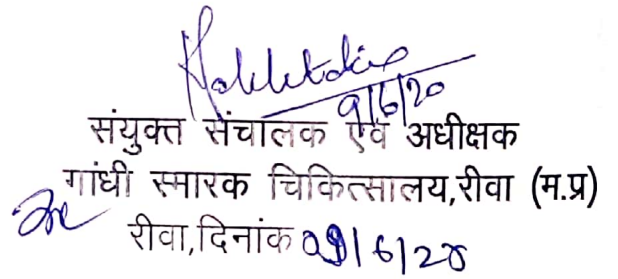 9/6/20
संयुक्त संचालक एवं अधीक्षक
गांधी स्मारक चिकित्सालय,रीवा (म.प्र)
रीवा,दिनांक 09/6/20